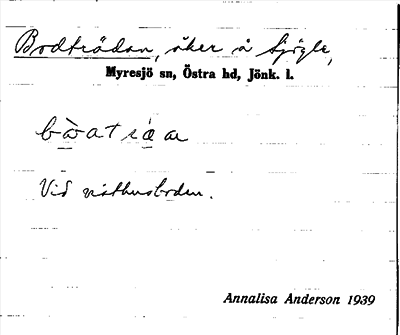 Bodträdan, åker å Sjögle,
Myresjö sn, Östra hd, Jönk. l.
Vid visthusboden.
Annalisa Anderson 1939